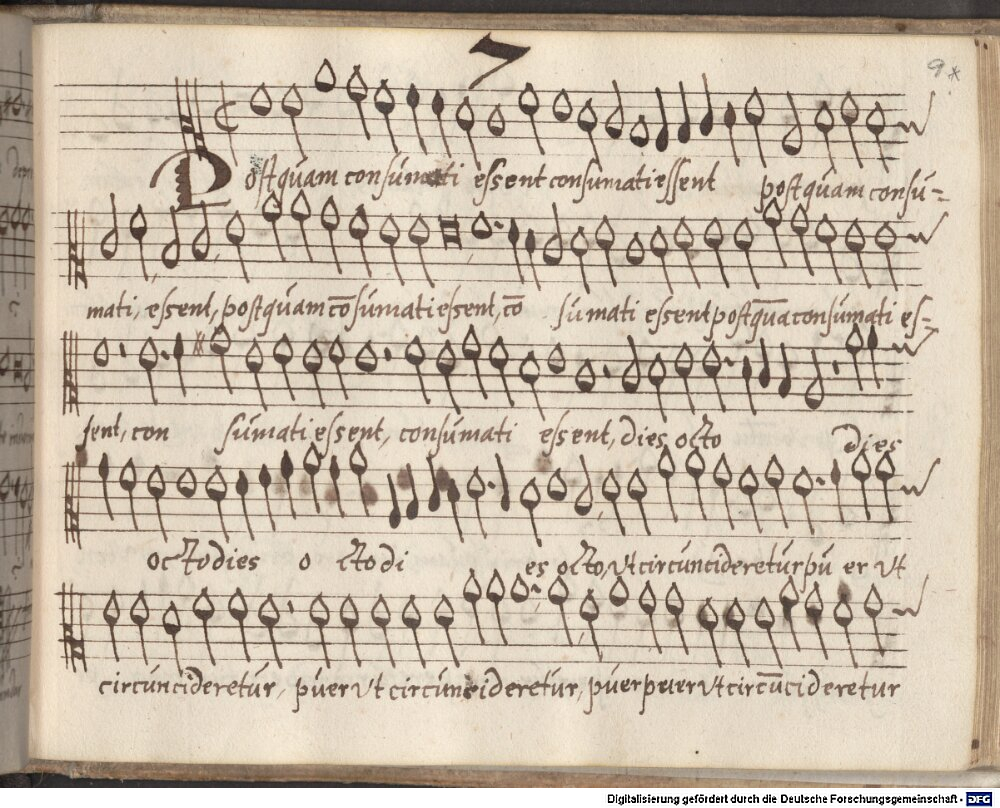 7
9*
Postquam consumati essent consumati essent postquam consu-
mati, essent, postquam cōsumati essent, cō sumati essent postquā consumati es-
sent, con sumati essent, consumati essent, dies octo dies
octo dies o cto di es octo, ut circuncideretur pu er ut
circuncideretur, puer ut circuncideretur, puer puer ut circūcideretur
Digitalisierung gefördert durch die Deutsche Forschungsgemeinschaft - DFG